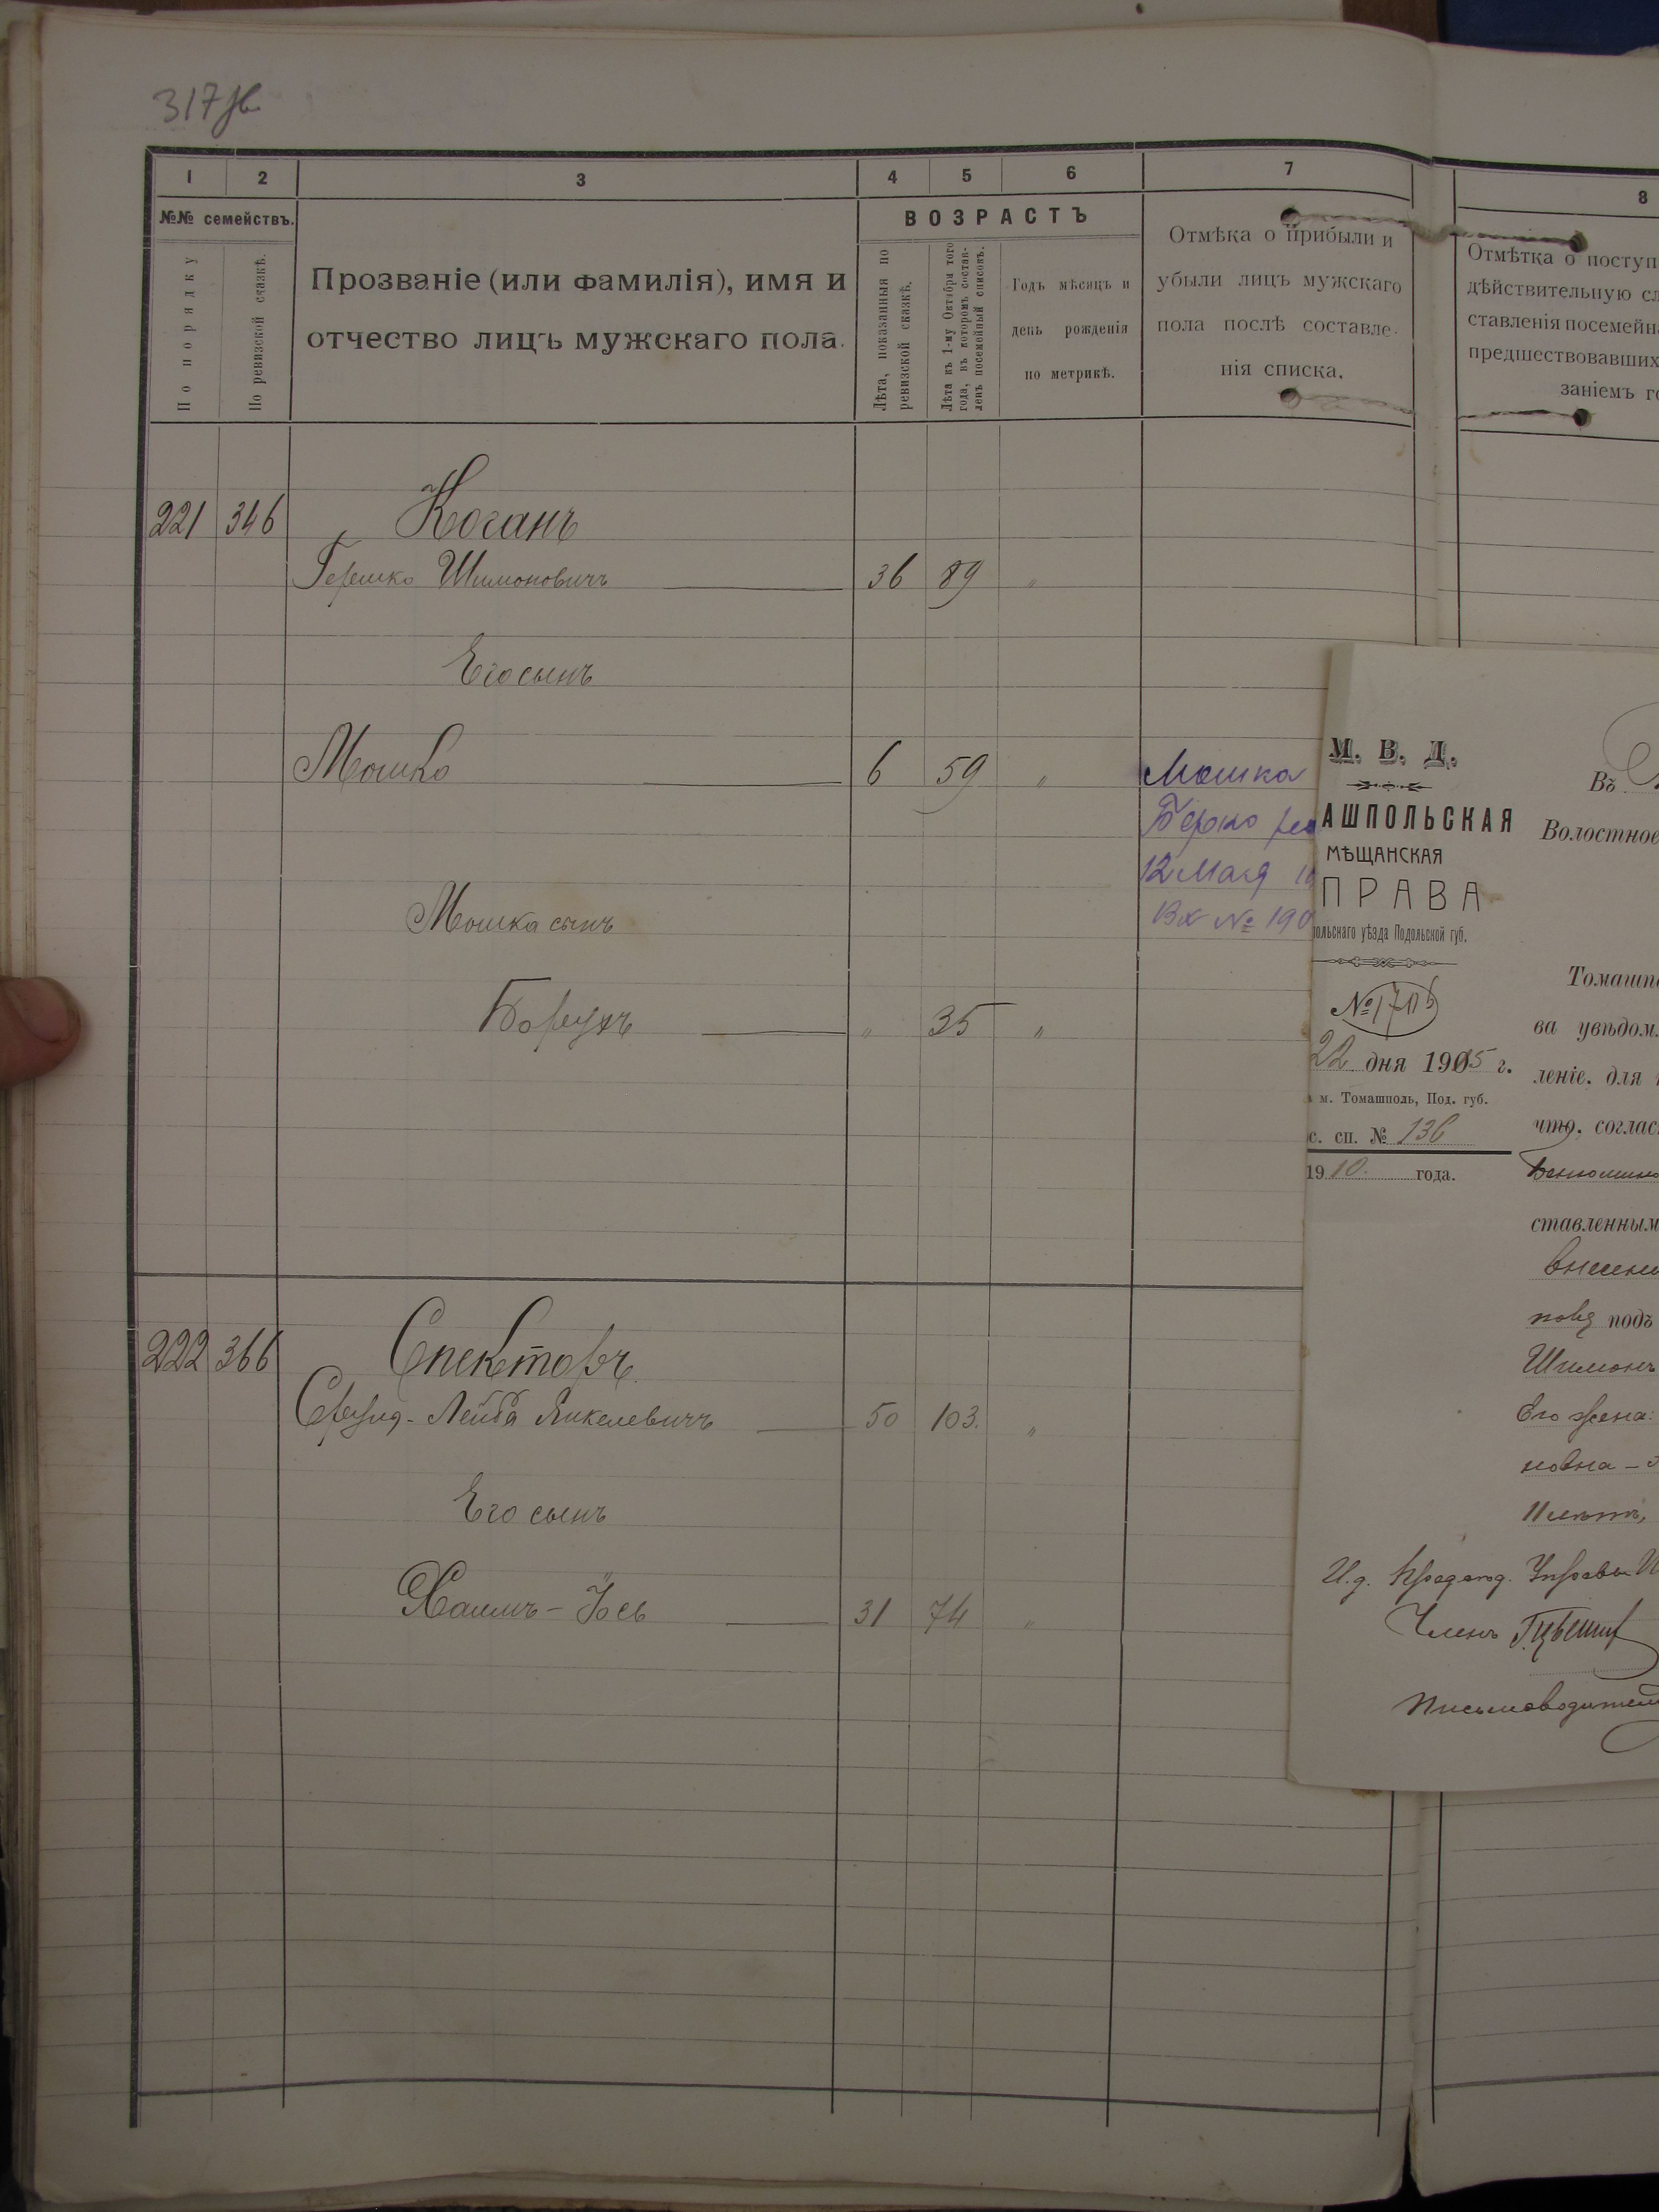 317 зв
1 2 3 4 5 6 7 8
№№ семействъ.
По порядку
По ревизской сказкѣ.
Прозваніе (или фамилія), имя и
отчество лицъ мужскаго пола.
ВОЗРАСТЪ
Лѣта, показанныя по
ревизской сказкѣ.
Лѣта къ 1-му Октября того
года, въ которомъ состав-
ленъ посемейный списокъ.
Годъ мѣсяцъ и
день рожденія
по метрикѣ.
Отмѣка о прибыли и
убыли лицъ мужскаго
пола послѣ составле-
нія списка.
Отмѣтка о поступ
дѣйствительную сл
ставленія посемейн
предшествовавших
заніемъ го
221 346 Коганъ
Гершко Шимоновичъ 36 89 "
Его сынъ
Мошко 6 59 "
Мошка сынъ
Борухъ " 35 "
Мошка
Берко
12 Мая
Вх № 190
222 366 Спекторъ
Сруль-Лейба Янкелевичъ 50 103. "
Его сынъ
Хаимъ-Іось 31 74 "
М. В. Д.
АШПОЛЬСКАЯ
МѢЩАНСКАЯ
ПРАВА
польскаго уѣзда Подольской губ.
№ 1706
22 дня 1915 г.
м. Томашполь, Под. губ.
с. сп. № 136
1910. года.
Въ
Волостное
Томашп
ва увѣдом
леніе. для
что, соглас
ставленным
внесен
подъ
Шимонъ
Его жена:
новна –
И.д. Предсѣд. Управы
Членъ
Письмоводител